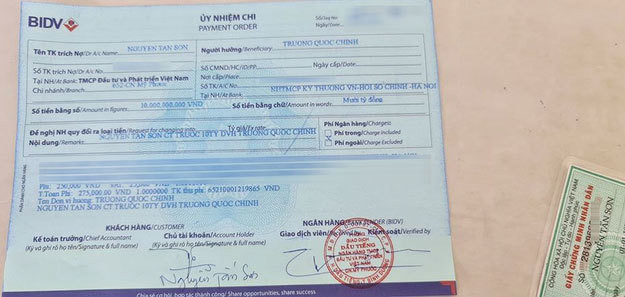 BIDV
ỦY NHIỆM CHI
PAYMENT ORDER
Số/Seq No:
Ngày/Date:
Tên TK trích Nợ/Dr A/c Name: NGUYEN TAN SON
Người hưởng/Beneficiary: TRUONG QUOC CHINH
Số CMND/HC/ID/PP:
Ngày cấp/Date:
Số TK trích Nợ/Dr A/c No:
Nơi cấp/Place:
Tại NH/At Bank: TMCP Đầu tư và Phát triển Việt Nam
Số TK/A/c No:
Chi nhánh/Branch: 652-CN MY PHUOC
Tại NH/At Bank: NHTMCP KY THUONG VN-HOI SO CHINH -HA NOI
Số tiền bằng số/Amount in figures: 10,000,000,000 VND
Số tiền bằng chữ/Amount in words: Mười tỷ đồng
Đề nghị NH quy đổi ra loại tiền/Request for changing into:
Tỷ giá/Ex rate:
Phí Ngân hàng/Charges:
Nội dung/Remarks: NGUYEN TAN SON CT TRUOC 10TY DVH TRUONG QUOC CHINH
Phí trong/Charge Included
Phí ngoài/Charge Excluded
Phi: 250,000 VND VAT: 25,000 VND
T.Toan Phi: 275,000.00 VND 1.0000000 TK thu phi: 65210001219885 VND
Ten Don vi huong: TRUONG QUOC CHINH
NGUYEN TAN SON CT TRUOC 10TY DVH TRUONG QUOC CHINH
KHÁCH HÀNG/CUSTOMER
NGÂN HÀNG
SENDER (BIDV)
Kế toán trưởng/Chief Accountant
Chủ tài khoản/Account Holder
Giao dịch viên
Kiểm soát/Verified by
(Ký và ghi rõ họ tên/Signature & full name)
(Ký và ghi rõ họ tên/Signature & full name)
GIAO DỊCH
DẦU TIẾNG
NGÂN HÀNG TMCP
ĐẦU TƯ VÀ PHÁT TRIỂN
VIỆT NAM
CN MỸ PHƯỚC
Nguyễn Tấn Sơn
Chia sẻ cơ hội, hợp tác thành công / Share opportunities, share success
CỘNG HÒA XÃ HỘI CHỦ NGHĨA VIỆT NAM
GIẤY CHỨNG MINH NHÂN DÂN
SỐ
NGUYỄN TẤN SƠN